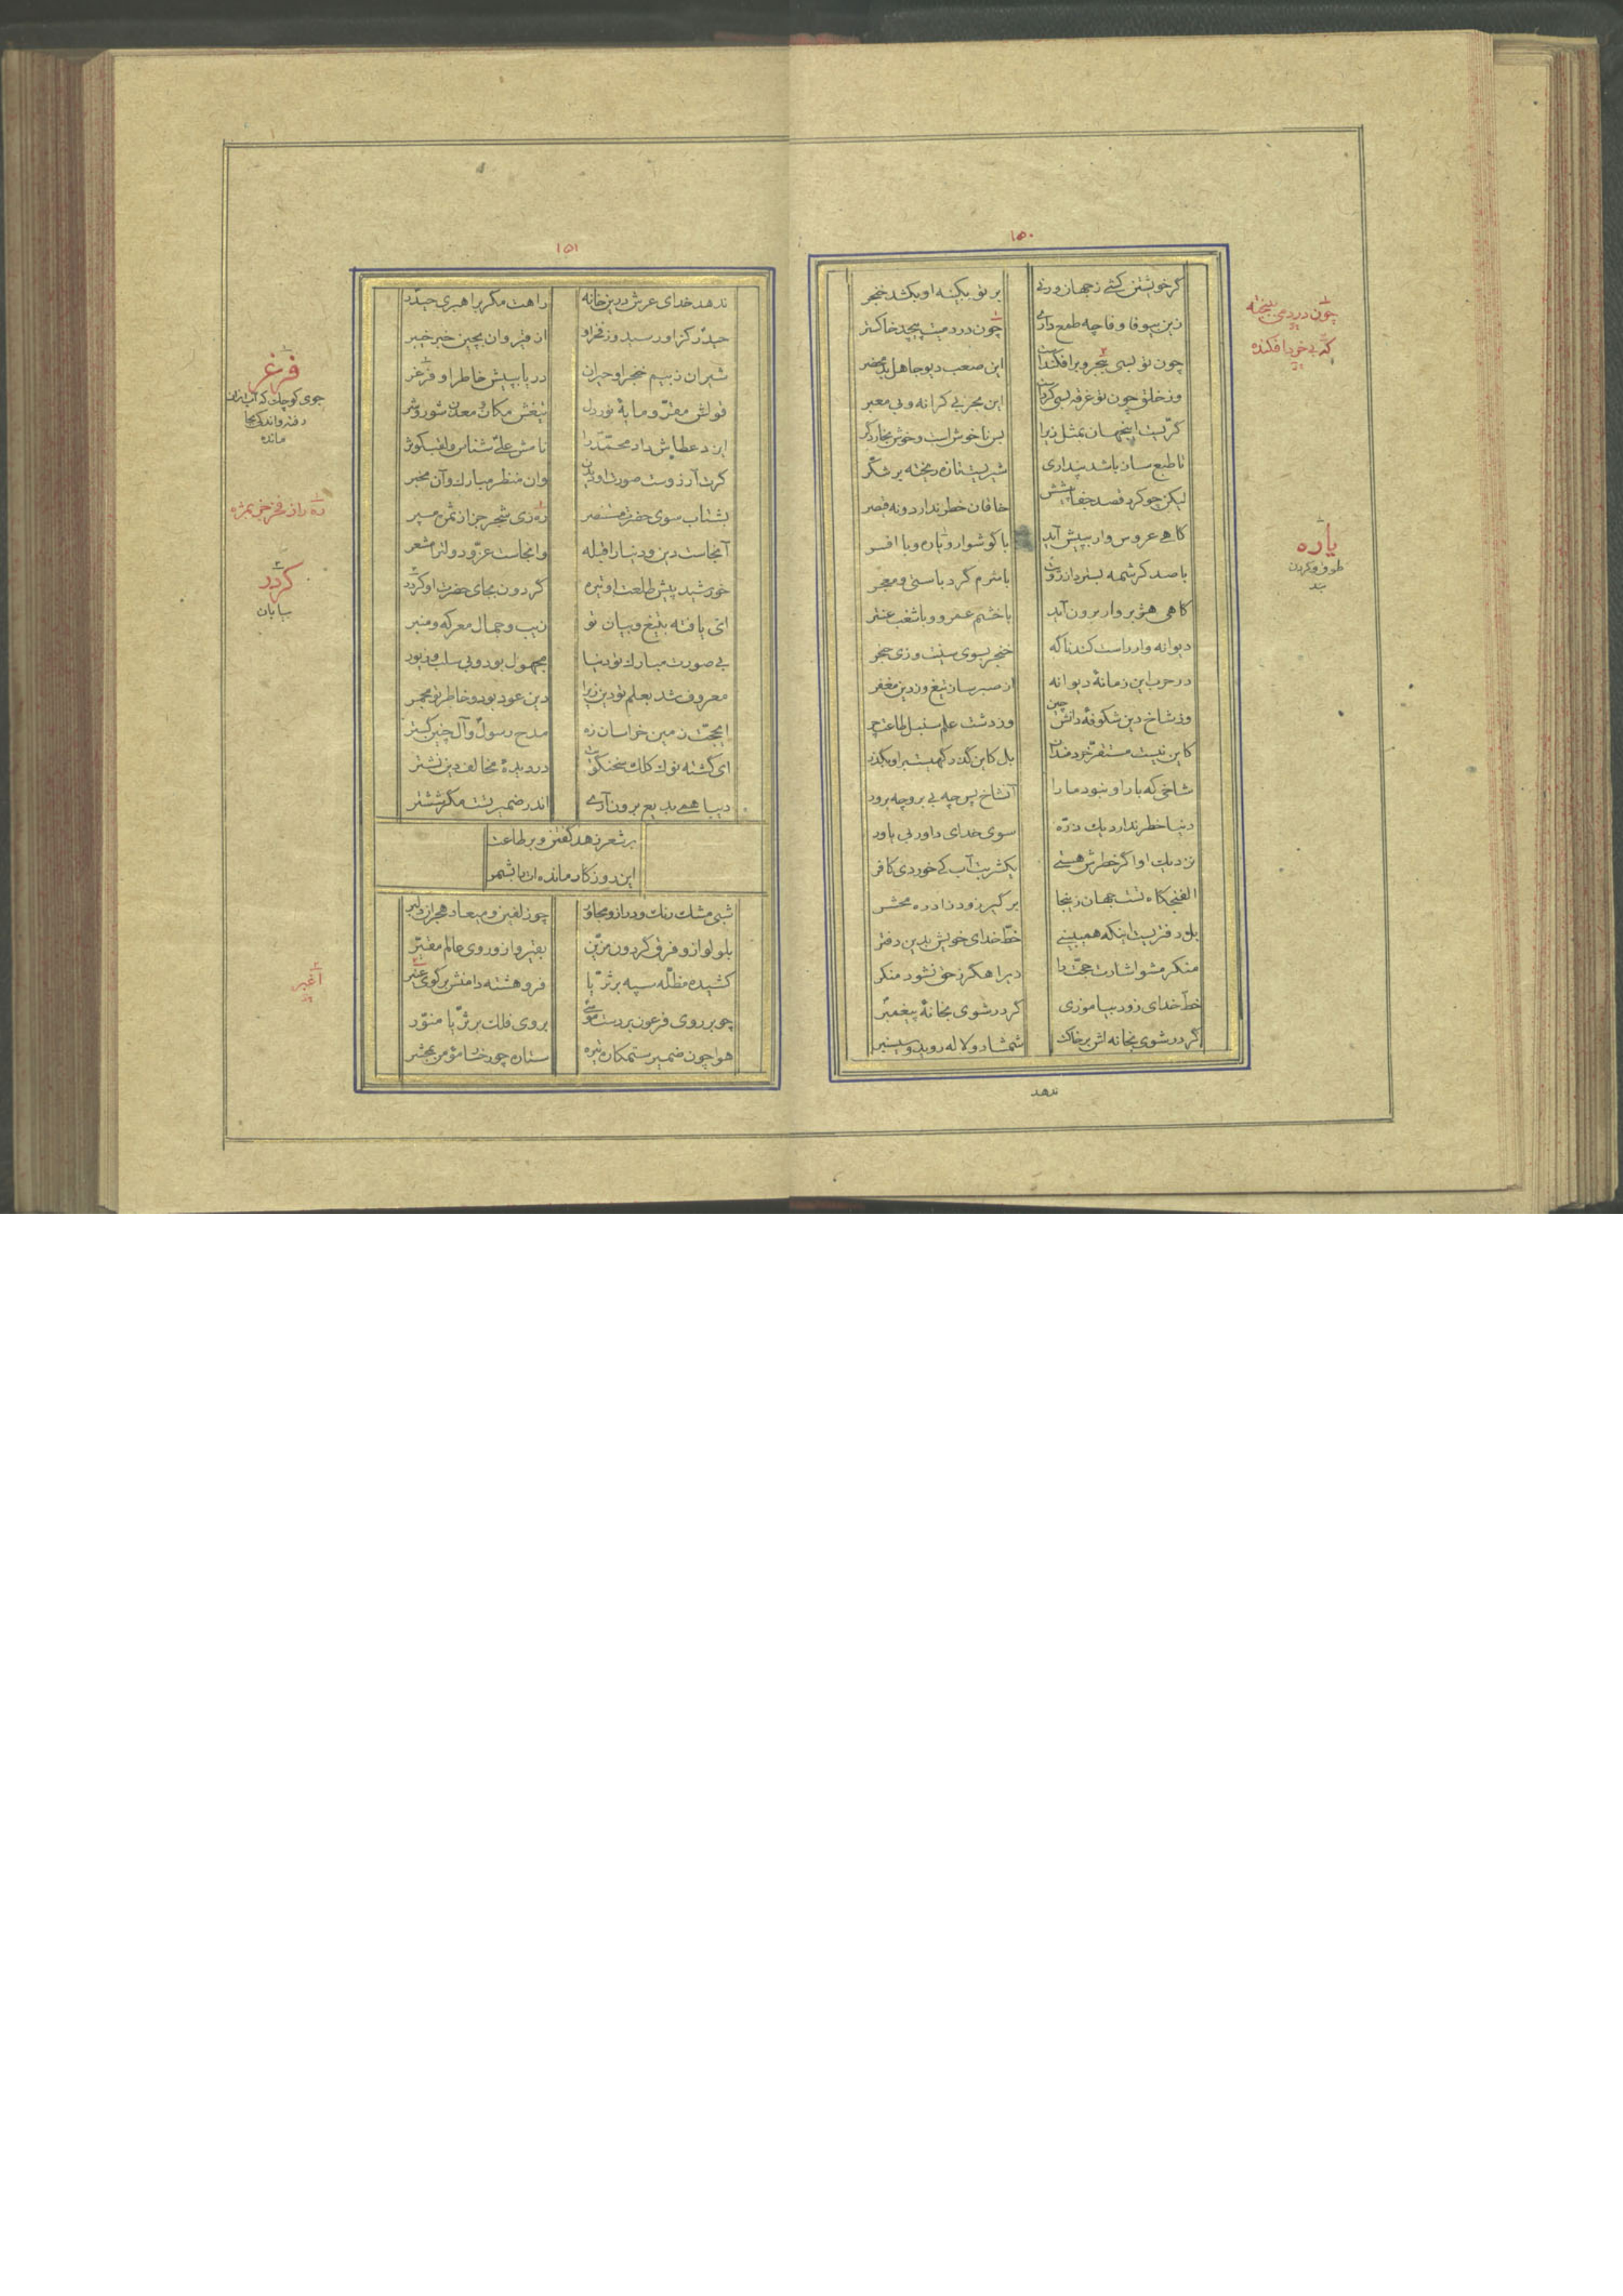 ۱۵۰
گر خویشتن کشی ز جهان ورنی
بر تو بکینه او بکشد خنجر
زین بیوفا وفا چه طمع داری
چون در دمت پیچد خاکستر
چون تو بسی بجر و برافکنداست
این صعب دیو جاهل بدمحضر
وز خلق چون تو غرقه بسی کرداست
این بحر بی کرانه و بی معبر
گرت این جهان بمثل زیرا
بس ناخوش است و خوش بخارد گر
با طبع ساز باشد پنداری
شیریست تازه ریخته بر شکر
لیکن چو کرد قصد جفا پیشش
خاقان خطر ندارد و نه قیصر
گاهی عروس وار بپیش آید
با گوشوار و یاره و با افسر
با صد کرشمه بسترد از رویت
با شرم گرد باستی و معجر
گاهی هزبروار برون آید
با خشم عمرو و با شغب عنتر
دیوانه وار راست کند ناگه
خنجر بسوی سینت و زی حنجر
در حرب این زمانهٔ دیوانه
از صبر ساز تیغ وز دین مغفر
وز شاخ دین شکوفهٔ دانش چین
وز دشت علم سنبل طاعت چر
کاین نیست مستقر خردمندان
بل کاین گذر گهیست بر او بگذر
شاخی که بار او نبود ما را
آنشاخ پس چه بی بر و چه برور
دنیا خطر ندارد یک ذره
سوی خدای داور بی یاور
نزدیک او اگر خطرش هستی
یکشربت آب کی خوردی کافر
الفنجگاه تست جهان زینجا
بر گیر زود زاد ره محشر
بل دفتریست اینکه همی بینی
خط خدای خویش بدین دفتر
منکر مشو اشارت حجت را
زیرا هگرز حق نشود منکر
خط خدای زود بیاموزی
گر در شوی بخانهٔ پیغمبر
گر در شوی بخانه اش بر خاک
شمشاد و لاله روید و سیسنبر
ندهد
چون دردمی بیخته
که بی خو بافکنده
یاره
طوق و گردن
بند
۱۵۱
ندهد خدای عرش در این خانه
راهت مگر براهبری حیدر
حیدر کز او رسید وز فخر او
از قیروان بچین خبر خیبر
شیران ز بیم خنجر او حیران
دریا بپیش خاطر او فرغر
قولش مقر و مایهٔ نور دل
تیغش مکان و معدن شور و شر
ایزد عطاش داد محمد را
نامش علی شناس و لقب کوثر
گرت آرزوست صورت او دیدن
وان منظر مبارک و آن مخبر
بشتاب سوی حضرت مستنصر
ره زی شجر جز از ثمرش مسپر
آنجاست دین و دنیا را قبله
وانجاست عز و دولت را مشعر
خورشید پیش طلعت او تیره
گردون بجای حضرت او کردر
ای یافته بتیغ و بیان تو
زیب و جمال معرکه و منبر
بی صورت مبارک تو دنیا
مجهول بود و بی سلب و زیور
معروف شد بعلم تو دین زیرا
دین عود بود و خاطر تو مجمر
ای حجت زمین خراسان زه
مدح رسول و آل چنین گستر
ای گشته نوک کلک سخنگویت
در دیدهٔ مخالف دین نشتر
دیبا همی بدیع برون آری
اندر ضمیر تست مگر ششتر
بر شعر زهد گفتن و بر طاعت
این روزگار مانده ات را شمر
شبی مشک رنگ و دراز و مجاور
چو زلفین و میعاد هجران دلبر
بلولو از او فرق گردون مزین
بقیر و از او روی عالم مقیر
کشیده مظله سیه بر ثریا
فرو هشته دامنش بر گوی عنبر
چو بر روی فرعون بر دست موسی
بروی فلک بر ثریا منور
هوا چون ضمیر ستمکاره تیره
ستاره چو رخسار مؤمن بمحشر
فرغر
جوی کوچک که آب از آن
رفته و اندکی بجا
مانده
ره راز فخر جز بمژه
کردر
بیابان
اغبر